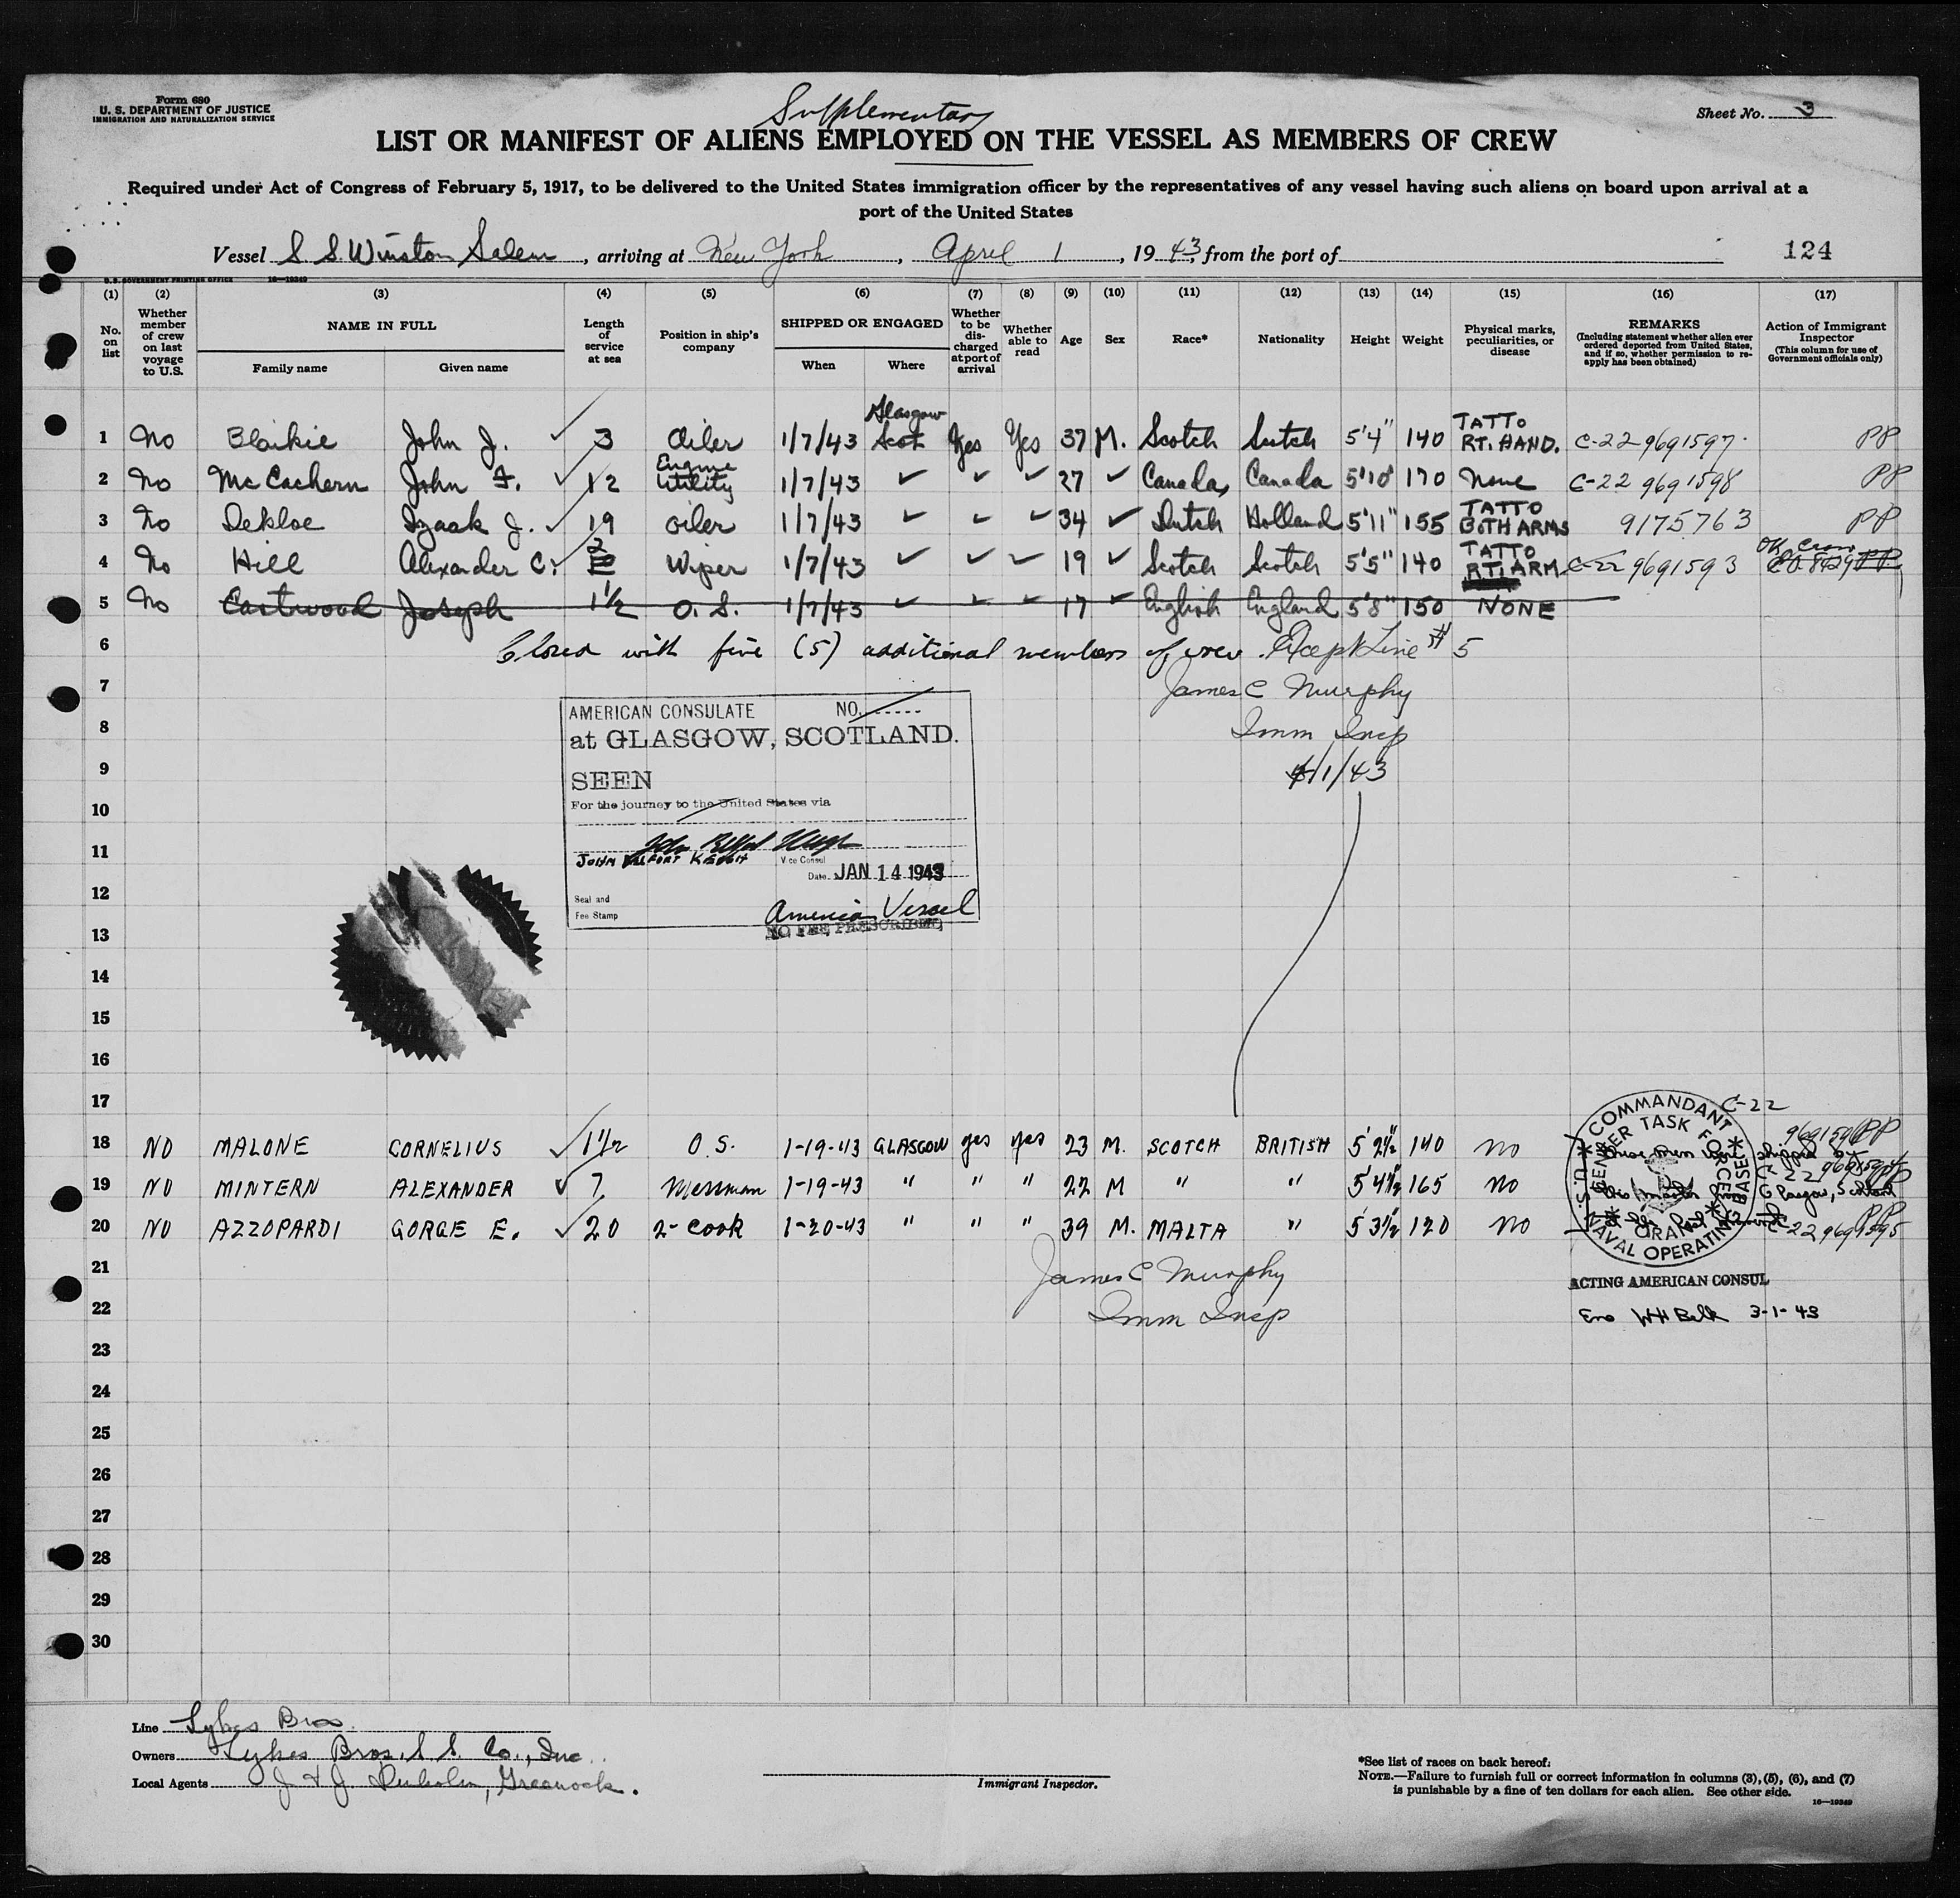 Form 680
U. S. DEPARTMENT OF JUSTICE
IMMIGRATION AND NATURALIZATION SERVICE
Supplementary
Sheet No. 3
LIST OR MANIFEST OF ALIENS EMPLOYED ON THE VESSEL AS MEMBERS OF CREW
Required under Act of Congress of February 5, 1917, to be delivered to the United States immigration officer by the representatives of any vessel having such aliens on board upon arrival at a
port of the United States
Vessel S S. Winston Salem, arriving at New York, April 1, 1943, from the port of
124
U.S. GOVERNMENT PRINTING OFFICE 16—19349
(1) (2) (3) (4) (5) (6) (7) (8) (9) (10) (11) (12) (13) (14) (15) (16) (17)
No. on list
Whether member of crew on last voyage to U.S.
NAME IN FULL
Family name
Given name
Length of service at sea
Position in ship's company
SHIPPED OR ENGAGED
When
Where
Whether to be discharged at port of arrival
Whether able to read
Age
Sex
Race*
Nationality
Height
Weight
Physical marks, peculiarities, or disease
REMARKS
(Including statement whether alien ever ordered deported from United States, and if so, whether permission to reapply has been obtained)
Action of Immigrant Inspector
(This column for use of Government officials only)
1 No Blaikie John J. ✓ 3 Oiler 1/7/43 Glasgow Scot. Yes Yes 37 M. Scotch Scotch 5'4" 140 TATTO RT. HAND. C-22 9691597. PP
2 No McCachern John F. ✓ 12 Engine Utility 1/7/43 ✓ ✓ ✓ 27 ✓ Canada, Canada 5'10" 170 None C-22 9691598 PP
3 No DeKloe Izaak J. ✓ 19 oiler 1/7/43 ✓ ✓ ✓ 34 ✓ Dutch Holland 5'11" 155 TATTO BOTH ARMS 9175763 PP
4 No Hill Alexander C. ✓ 2 Wiper 1/7/43 ✓ ✓ ✓ 19 ✓ Scotch Scotch 5'5" 140 TATTO RT. ARM C-22 9691593 PP
5 No Eastwood Joseph 1½ O. S. 1/7/43 ✓ ✓ ✓ 17 ✓ English England 5'8" 150 NONE
6 Closed with five (5) additional members of crew. Except Line # 5
7 James C Murphy
8 Imm Insp
9 4/1/43
AMERICAN CONSULATE NO.
at GLASGOW, SCOTLAND.
SEEN
For the journey to the United States via
JOHN BELFORT KEOGH Vice Consul
Date JAN 14 1943
Seal and
Fee Stamp
American Vessel
NO FEE PRESCRIBED
10
11
12
13
14
15
16
17
C-22
18 NO MALONE CORNELIUS ✓ 1½ O. S. 1-19-43 GLASGOW yes yes 23 M. SCOTCH BRITISH 5' 2½" 140 NO PP
19 NO MINTERN ALEXANDER ✓ 7 Messman 1-19-43 " " " 22 M " " 5' 4½" 165 NO
20 NO AZZOPARDI GORGE E. ✓ 20 2-COOK 1-20-43 " " " 39 M. MALTA " 5' 3½" 120 NO C-22 9691595 PP
COMMANDANT
U.S. NAVAL OPERATING BASE
ACTING AMERICAN CONSUL
Ens WH Belk 3-1-43
21 James C Murphy
22 Imm Insp
23
24
25
26
27
28
29
30
Line Lykes Bros.
Owners Lykes Bros. S. S. Co., Inc.
Local Agents J & J Denholm, Greenock.
Immigrant Inspector.
*See list of races on back hereof.
NOTE.—Failure to furnish full or correct information in columns (3), (5), (6), and (7)
is punishable by a fine of ten dollars for each alien. See other side.
16—19349